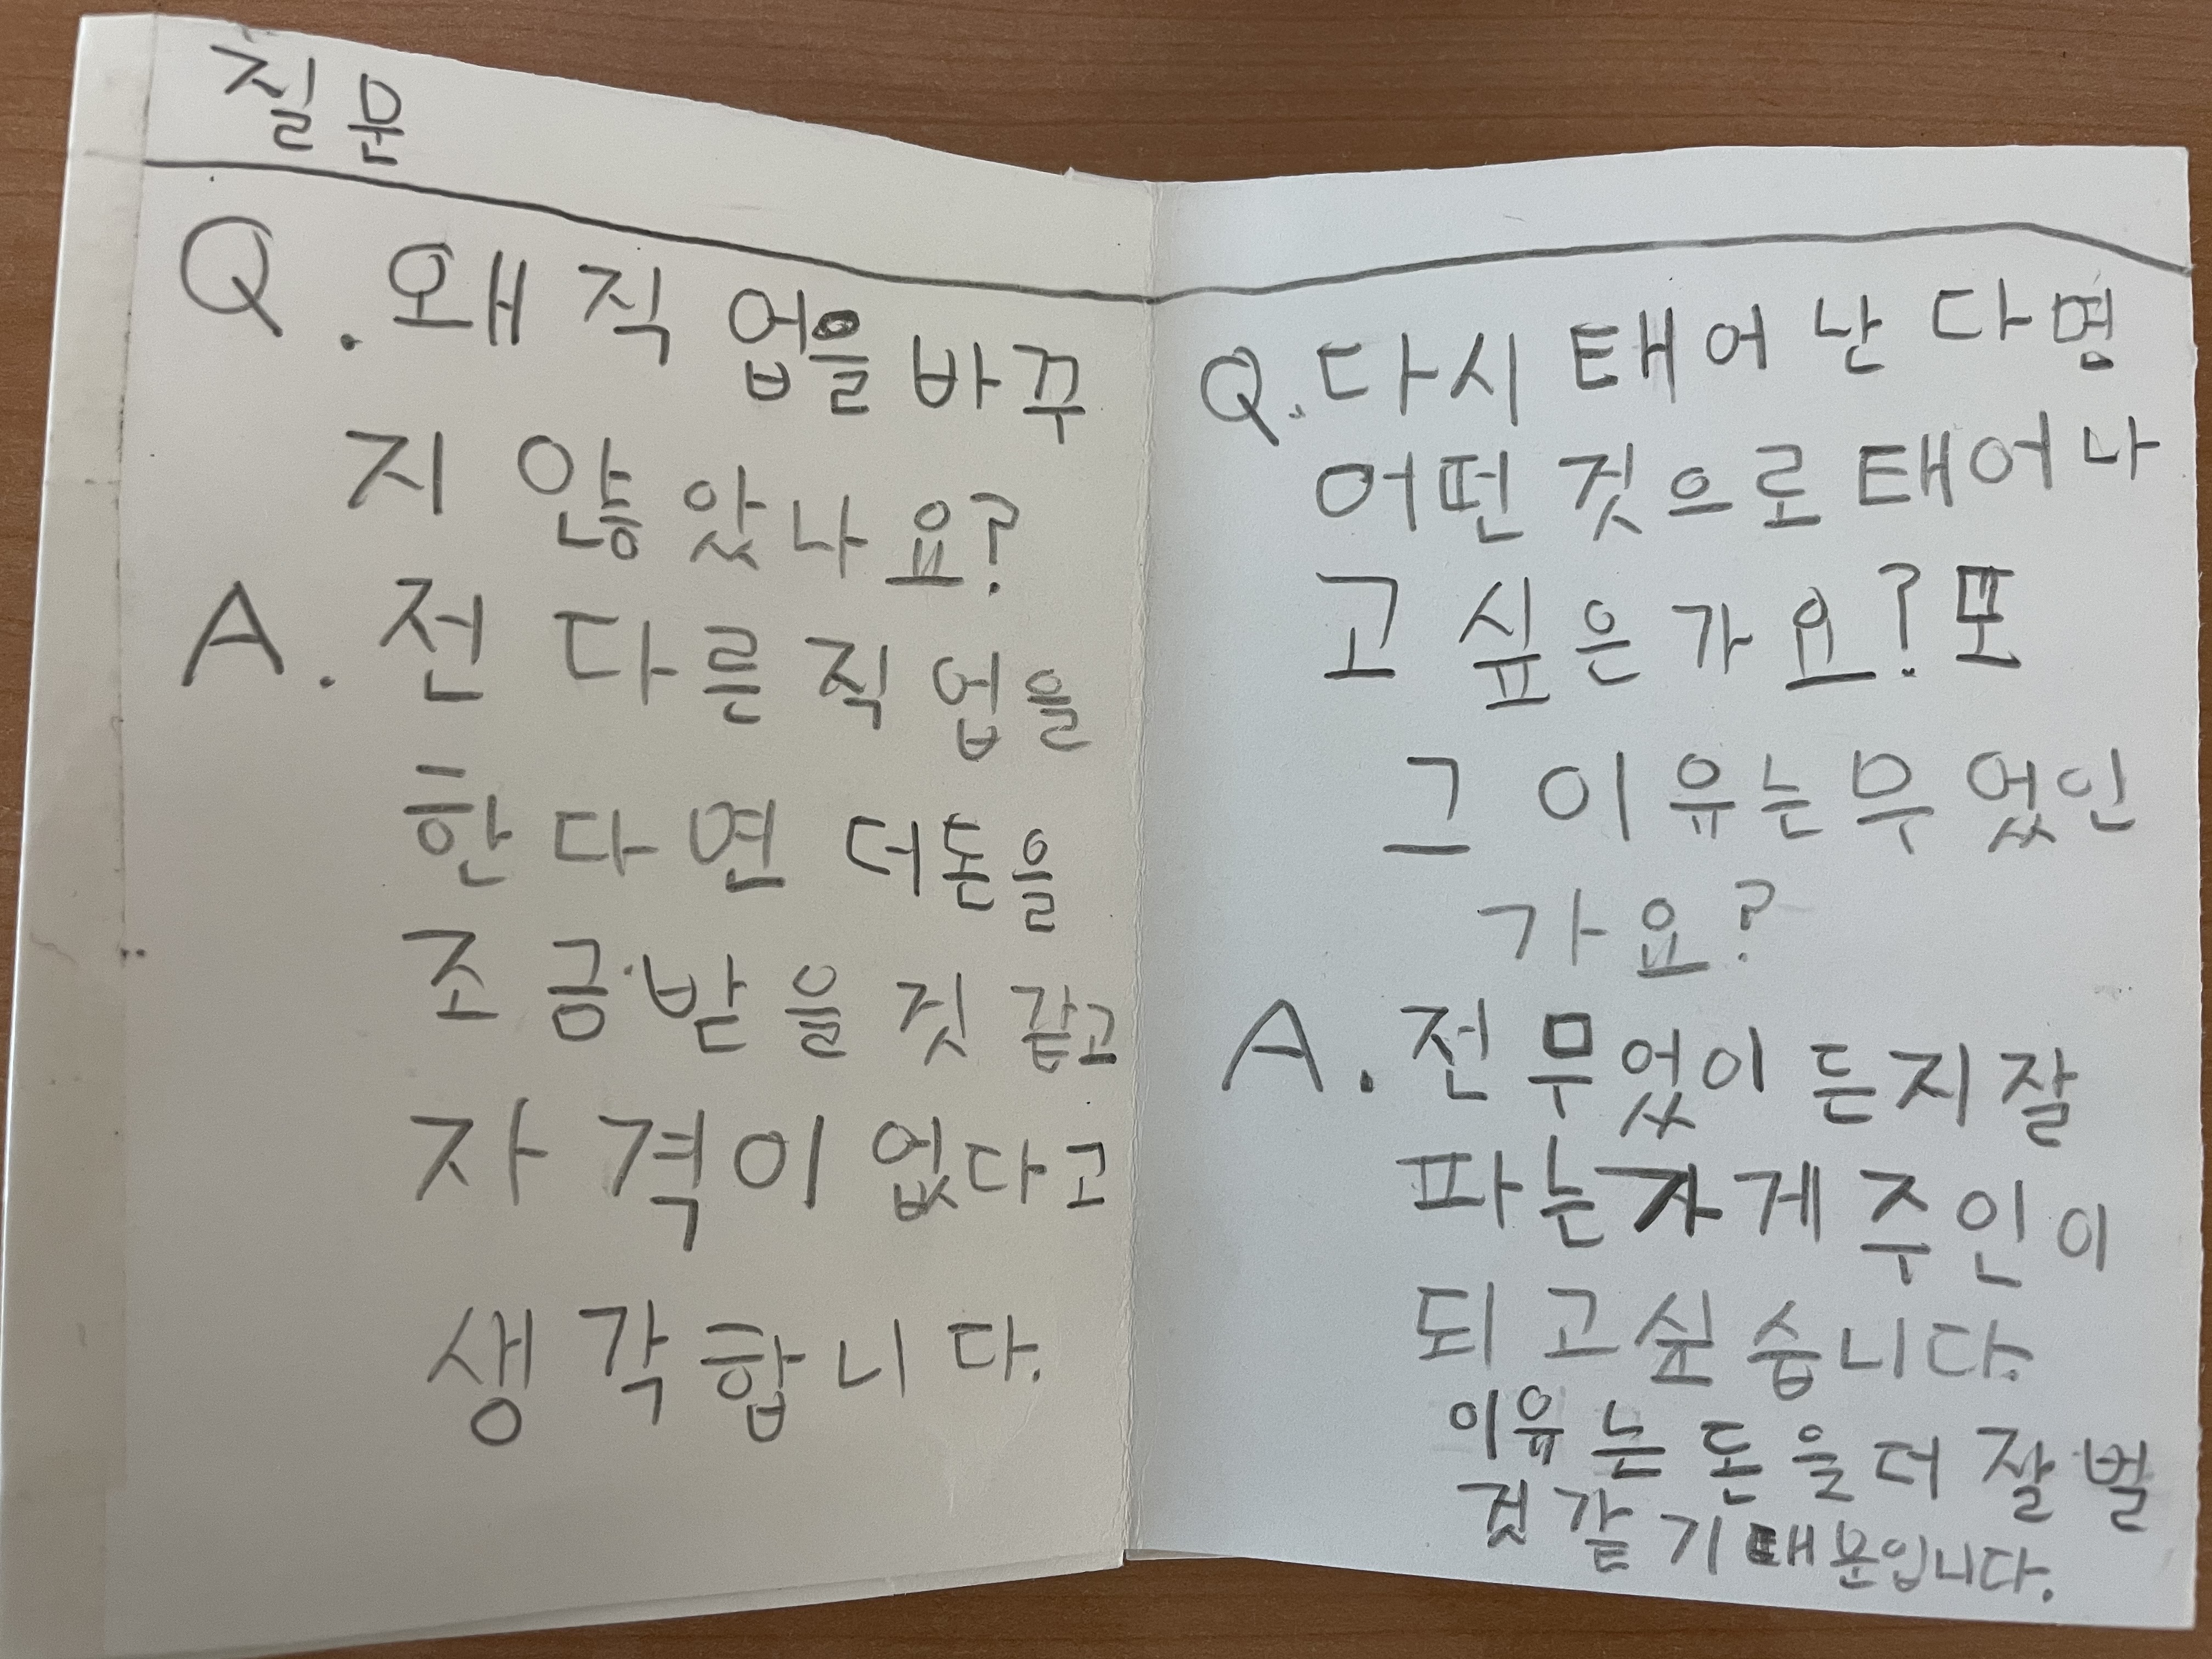 질문
Q. 왜 직업을 바꾸
지 않았나요?
A. 전 다른 직업을
한다면 더 돈을
조금 받을 것 같고
자격이 없다고
생각합니다.
Q. 다시 태어난다면
어떤 것으로 태어나
고 싶은가요? 또
그 이유는 무엇인
가요?
A. 전 무엇이든지 잘
파는 가게 주인이
되고 싶습니다.
이유는 돈을 더 잘 벌
것 같기 때문입니다.